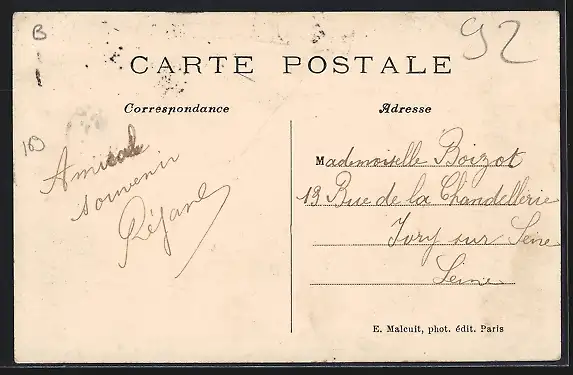 B
92
CARTE POSTALE
Correspondance
Adresse
Amical
souvenir
Réjane
Mademoiselle Boizot
13 Rue de la Chandellerie
Ivry sur Seine
Seine
E. Malcuit, phot. édit. Paris